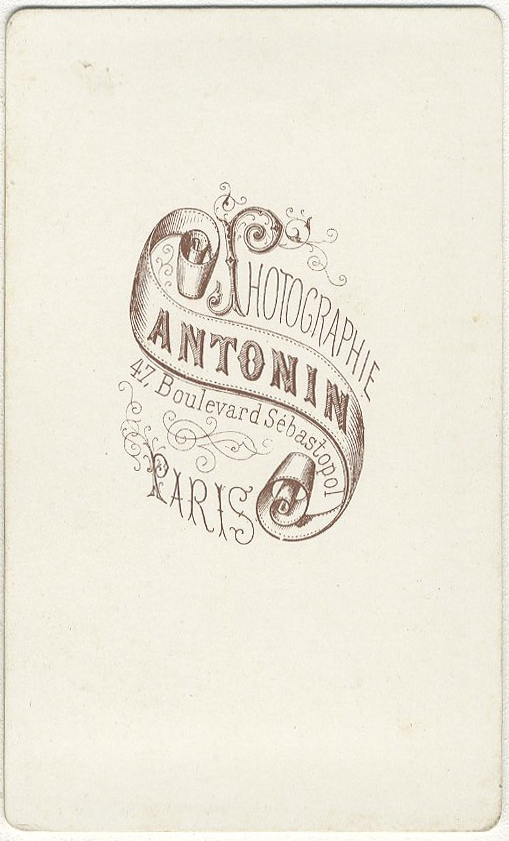 PHOTOGRAPHIE
ANTONIN
47, Boulevard Sébastopol
PARIS